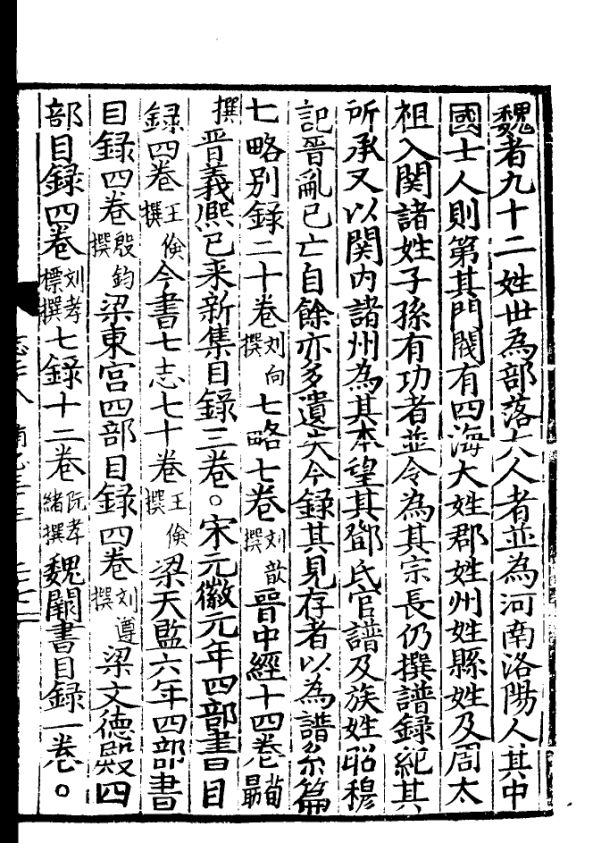 魏者九十二姓世為部落大人者並為河南洛陽人其中
國士人則第其門閥有四海大姓郡姓州姓縣姓及周太
祖入関諸姓子孫有功者並令為其宗長仍撰譜録紀其
所承又以関内諸州為其本望其鄧氏官譜及族姓昭穆
記晉亂已亡自餘亦多遺失今録其見存者以為譜系篇
七略別録二十卷刘向撰七略七卷刘歆撰晉中經十四卷荀勗
撰晉義熙已来新集目録三卷。宋元徽元年四部書目
録四卷王儉撰今書七志七十卷王儉撰梁天監六年四部書
目録四卷殷鈞撰梁東宫四部目録四卷刘遵撰梁文德殿四
部目録四卷刘孝標撰七録十二卷阮孝緒撰魏闕書目録一卷。